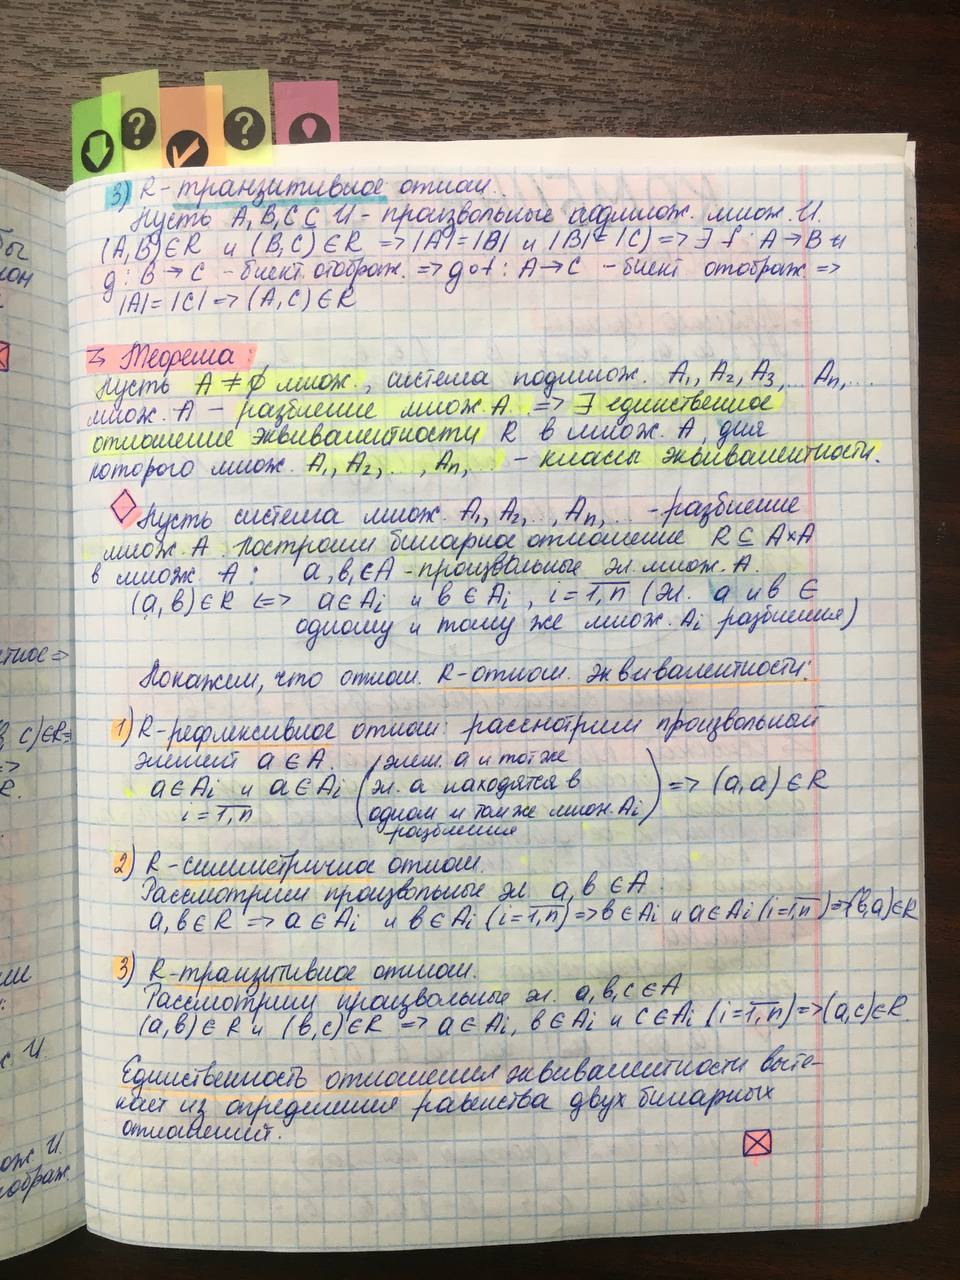 3) R - транзитивное отнош.
Пусть A, B, C ⊆ U - произвольные подмнож. множ. U.
(A, B) ∈ R и (B, C) ∈ R => |A| = |B| и |B| = |C| => ∃ f : A → B и
g : B → C - биект. отображ. => g∘f : A → C - биект отображ. =>
|A| = |C| => (A, C) ∈ R
Теорема:
Пусть A ≠ ∅ множ., система подмнож. A₁, A₂, A₃, ... Aₙ, ...
множ. A - разбиение множ. A => ∃ единственное
отношение эквивалентности R в множ. A, для
которого множ. A₁, A₂, ..., Aₙ, ... - классы эквивалентности.
Пусть система множ. A₁, A₂, .., Aₙ, ... - разбиение
множ. A. Построим бинарное отношение R ⊆ A×A
в множ. A: a, b ∈ A - произвольные эл. множ. A.
(a, b) ∈ R <=> a ∈ Aᵢ и b ∈ Aᵢ, i = 1,n̅ (эл. a и b ∈
одному и тому же множ. Aᵢ разбиения)
Покажем, что отнош. R - отнош. эквивалентности:
1) R - рефлексивное отнош: рассмотрим произвольный
элемент a ∈ A.
a ∈ Aᵢ и a ∈ Aᵢ (элем. a и тот же
эл. a находятся в
одном и том же множ. Aᵢ
разбиения) => (a, a) ∈ R
i = 1,n̅
2) R - симметричное отнош.
Рассмотрим произвольные эл. a, b ∈ A
a, b ∈ R => a ∈ Aᵢ и b ∈ Aᵢ (i = 1,n̅) => b ∈ Aᵢ и a ∈ Aᵢ (i = 1,n̅) => (b, a) ∈ R
3) R - транзитивное отнош.
Рассмотрим произвольные эл. a, b, c ∈ A
(a, b) ∈ R и (b, c) ∈ R => a ∈ Aᵢ, b ∈ Aᵢ и c ∈ Aᵢ (i = 1,n̅) => (a, c) ∈ R.
Единственность отношения эквивалентности выте-
кает из определения равенства двух бинарных
отношений.